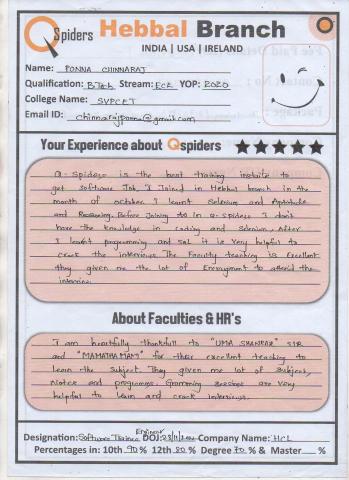 QSpiders Hebbal Branch
INDIA | USA | IRELAND
Name: PONNA CHINNARAJ
Qualification: B.Tech Stream: ECE YOP: 2020
College Name: SVPCET
Email ID: chinnarajponna@gmail.com
Your Experience about Qspiders
Q-Spiders is the best training institute to
get software Job. I Joined in Hebbal branch in the
month of october. I learnt Selenium and Aptitude
and Reasoning. Before Joining to in Q-spiders I don't
have the knowledge in coding and selenium. After
I learnt programming and sql it is very helpful to
crack the interviews. The Faculty teaching is Excellent
they given me the lot of to attend the
interview.
About Faculties & HR's
I am heartfully thankfull to "UMA SHANKAR" SIR
and "MAMATHA MAM" for their excellent teaching to
learn the subject. They given me lot of subject,
Notes and programms. Gromming sessions are very
helpful to learn and crack interviews.
Designation: Software Trainee Engineer DOJ: Company Name: HCL
Percentages in: 10th 90 % 12th 80 % Degree 70 % & Master %